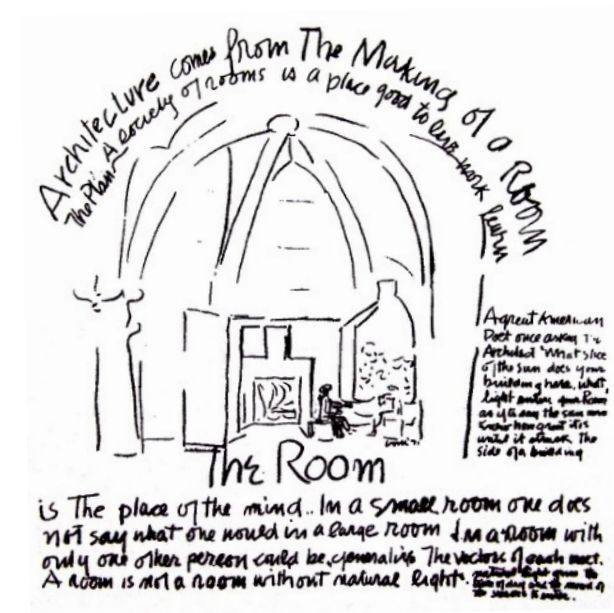 Architecture comes from The Making of a Room
The Plan A society of rooms is a place good to live work learn
A great American
Poet once asked the
Architect What slice
of the sun does your
building have, what
light enters your Room
as if to say the sun never
knew how great it is
until it struck the
side of a building
The Room
is The place of the mind.. In a small room one does
not say what one would in a large room In a Room with
only one other person could be generative The vectors of each meet.
A room is not a room without natural light.
natural light gives the
time of day and the mood of
the seasons to enter.